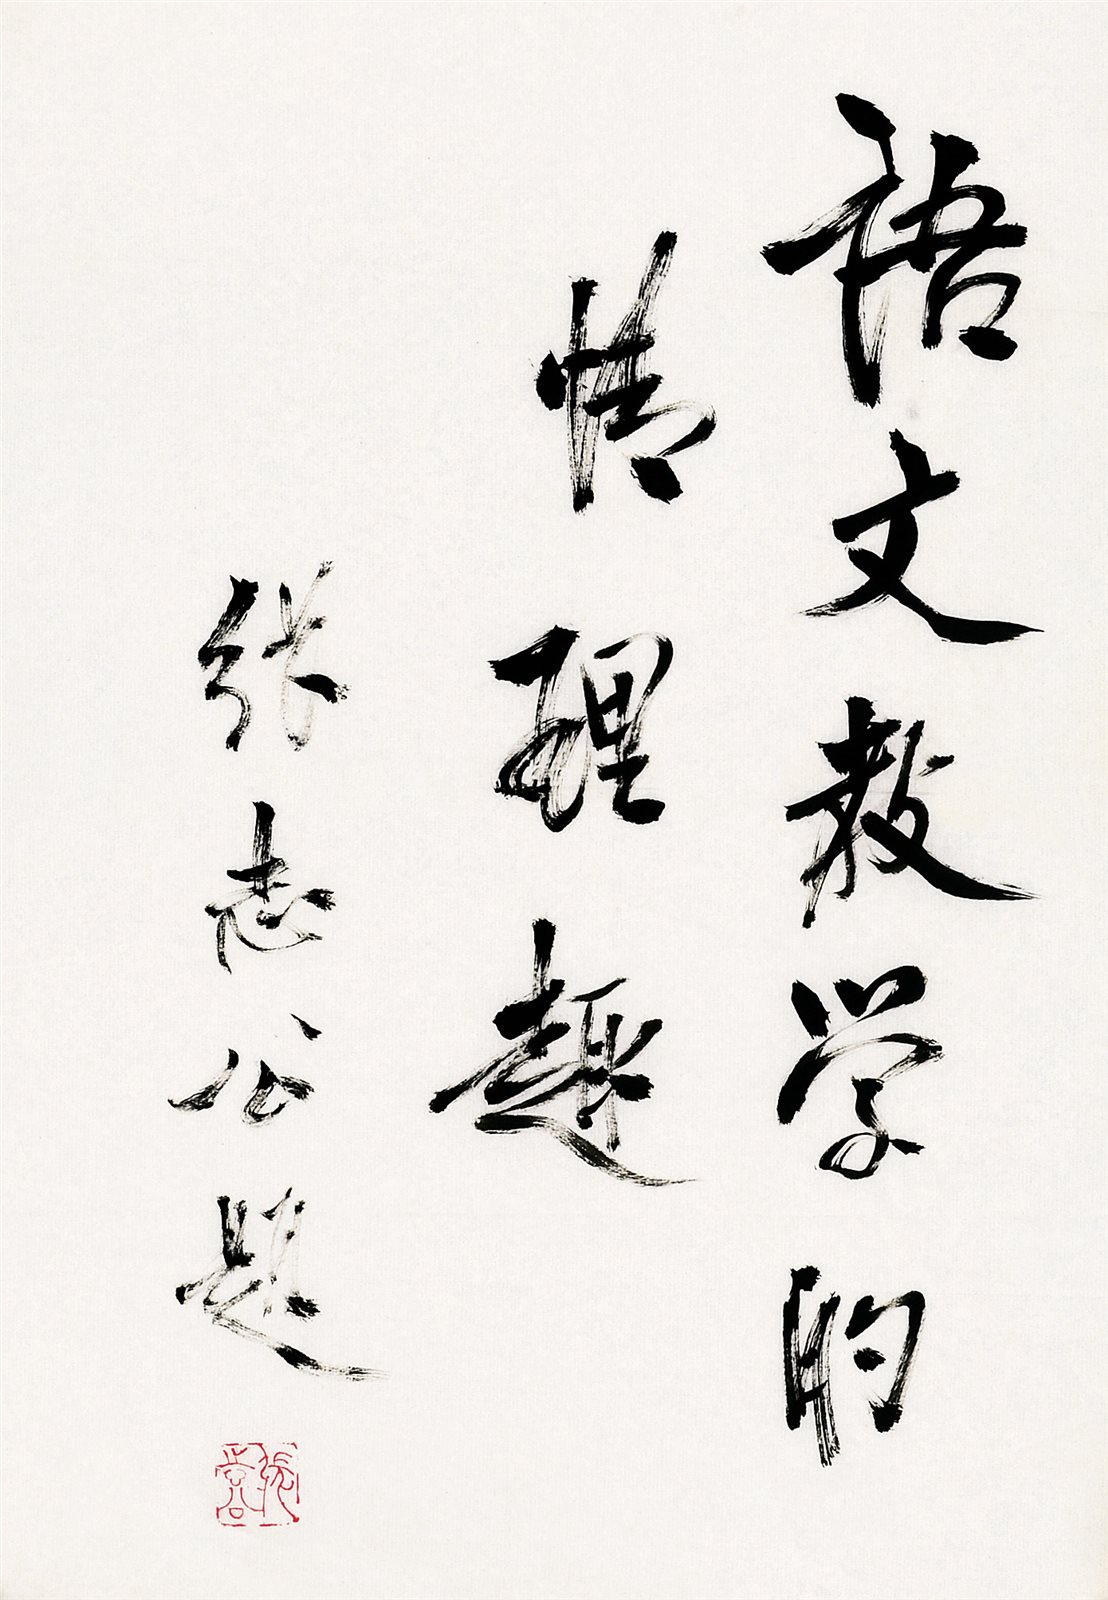 语文教学的
情理趣
张志公题
張志公